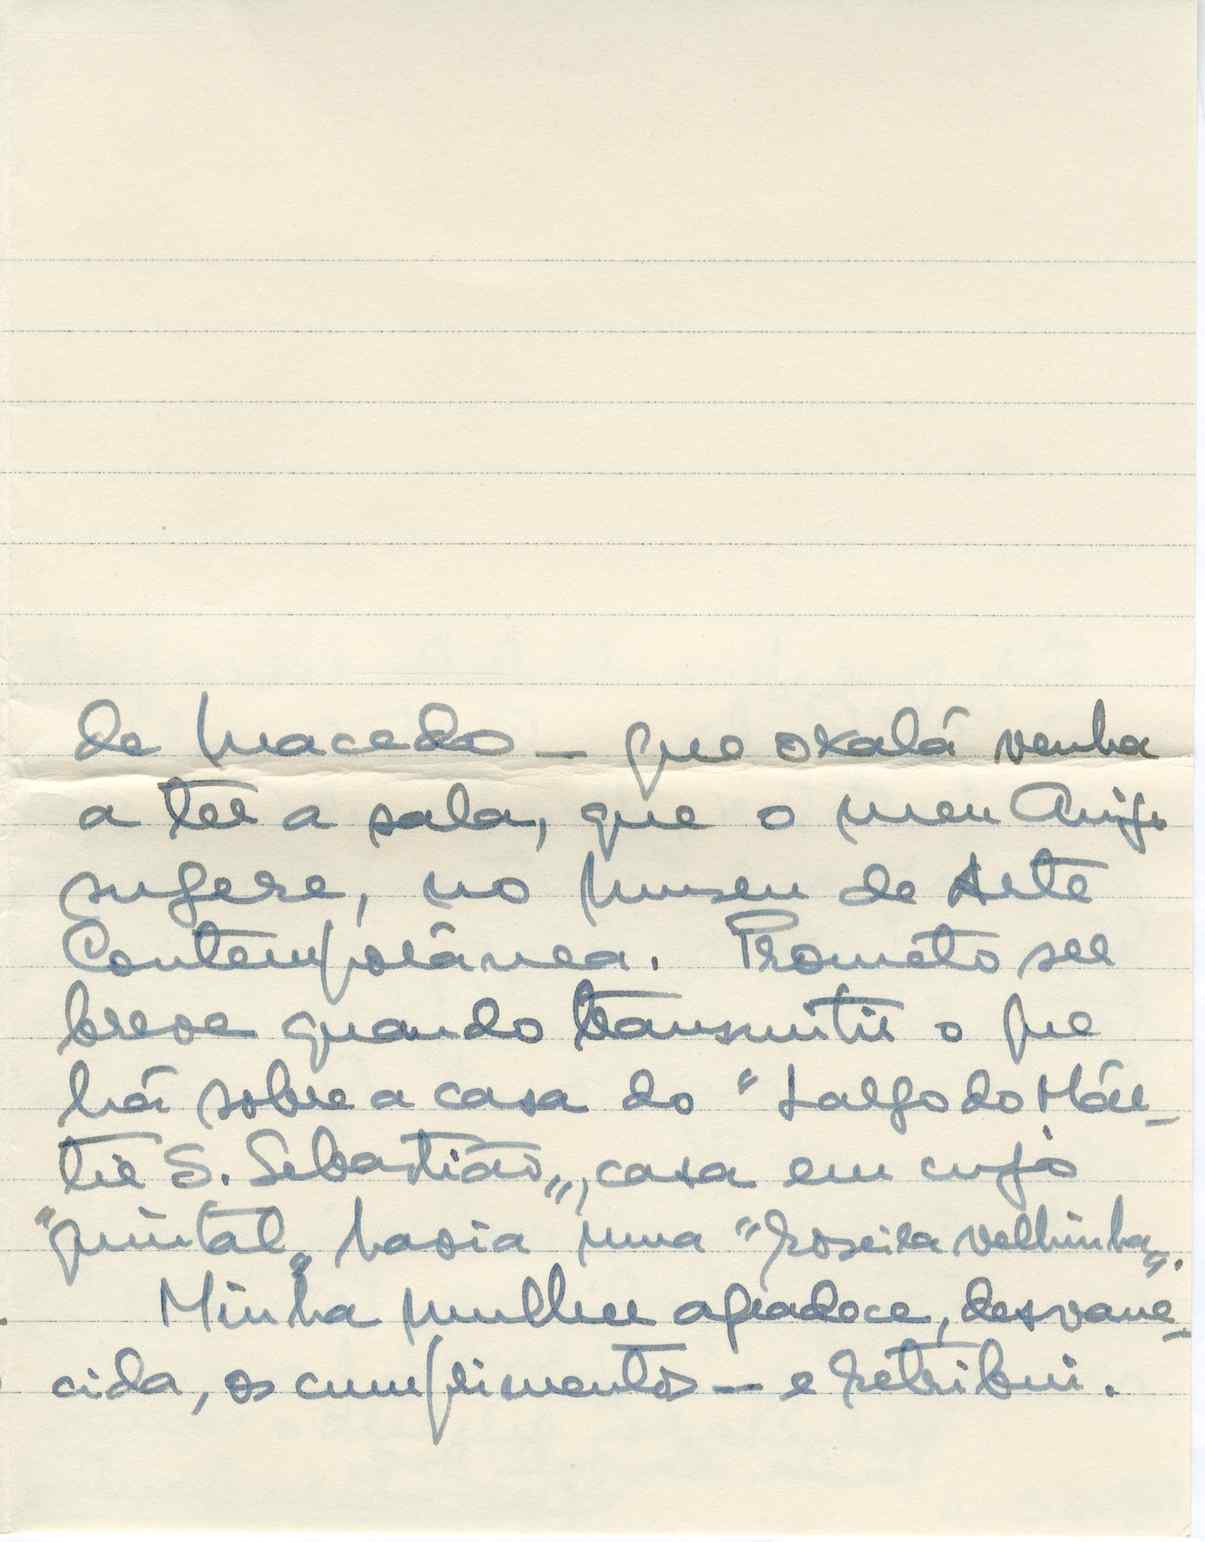 de Macedo — que oxalá venha
a ter a sala, que o meu Amigo
sugere, no Museu de Arte
Contemporânea. Prometo ser
breve quando transmitir o que
há sobre a casa do "Largo do Már-
tir S. Sebastião", casa em cujo
"quintal" havia uma "roseira velhinha".
Minha mulher agradece, desvane-
cida, os cumprimentos — e retribui.